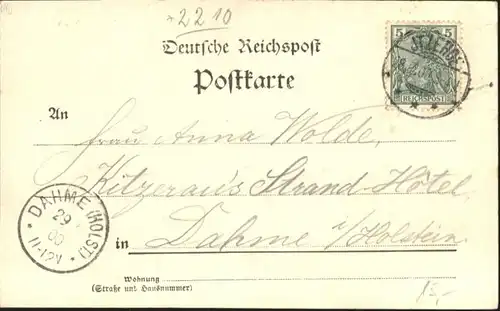 2210
Deutsche Reichspost
Postkarte
5
REICHSPOST
An
Frau Anna Wolde,
Kitzerau's Strand-Hôtel
in Dahme i/Holstein
DAHME (HOLST)
29
00
11-12V
Wohnung
(Straße und Hausnummer)